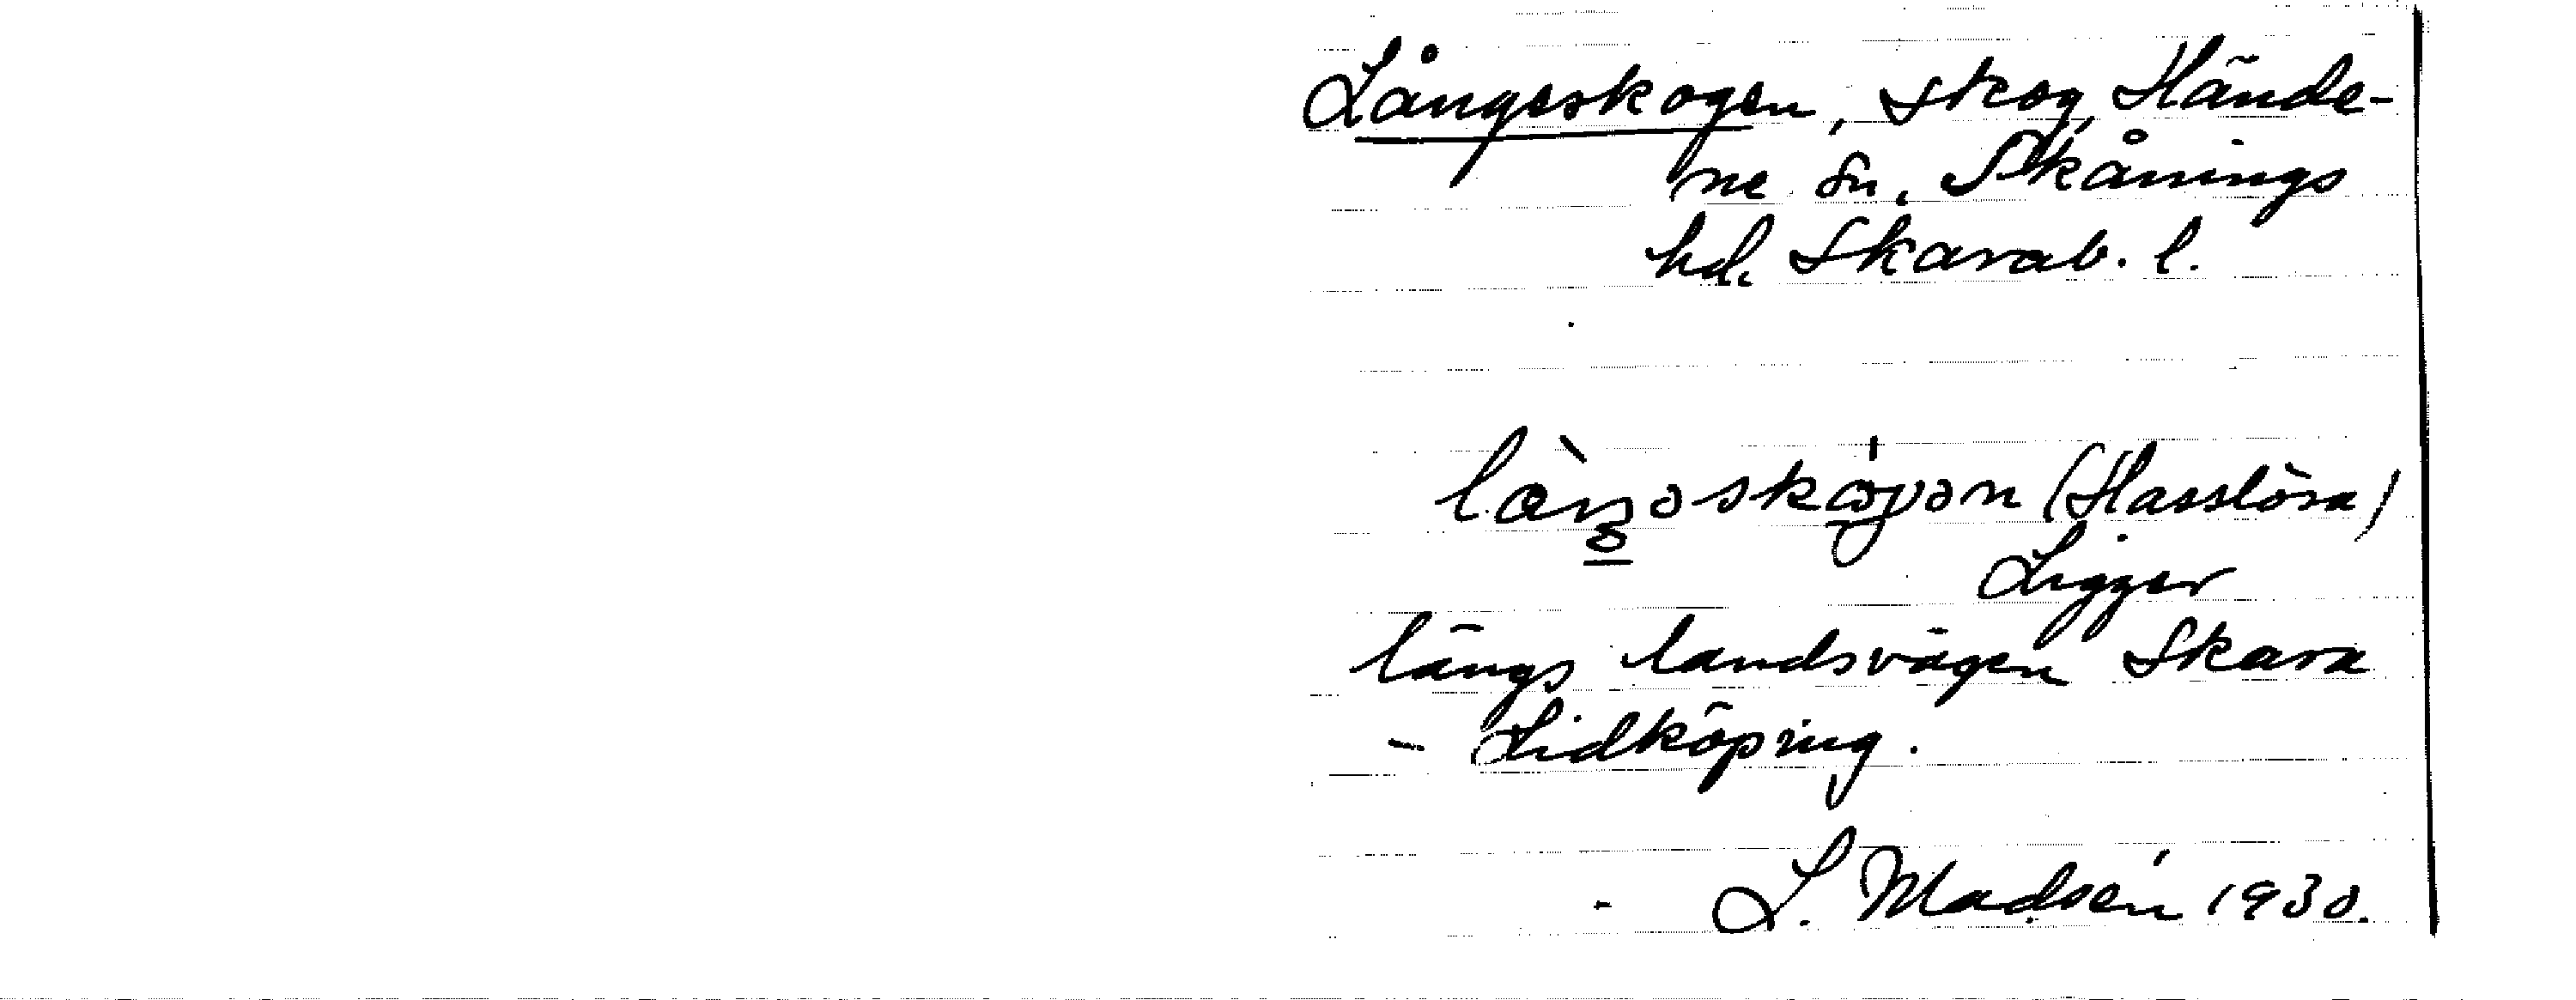 Långeskogen, skog, Hände-
ne sn, Skånings
hd. Skarab. l.
(Hasslösa)
Ligger
längs landsvägen Skara
- Lidköping.
L. Madsén 1930.